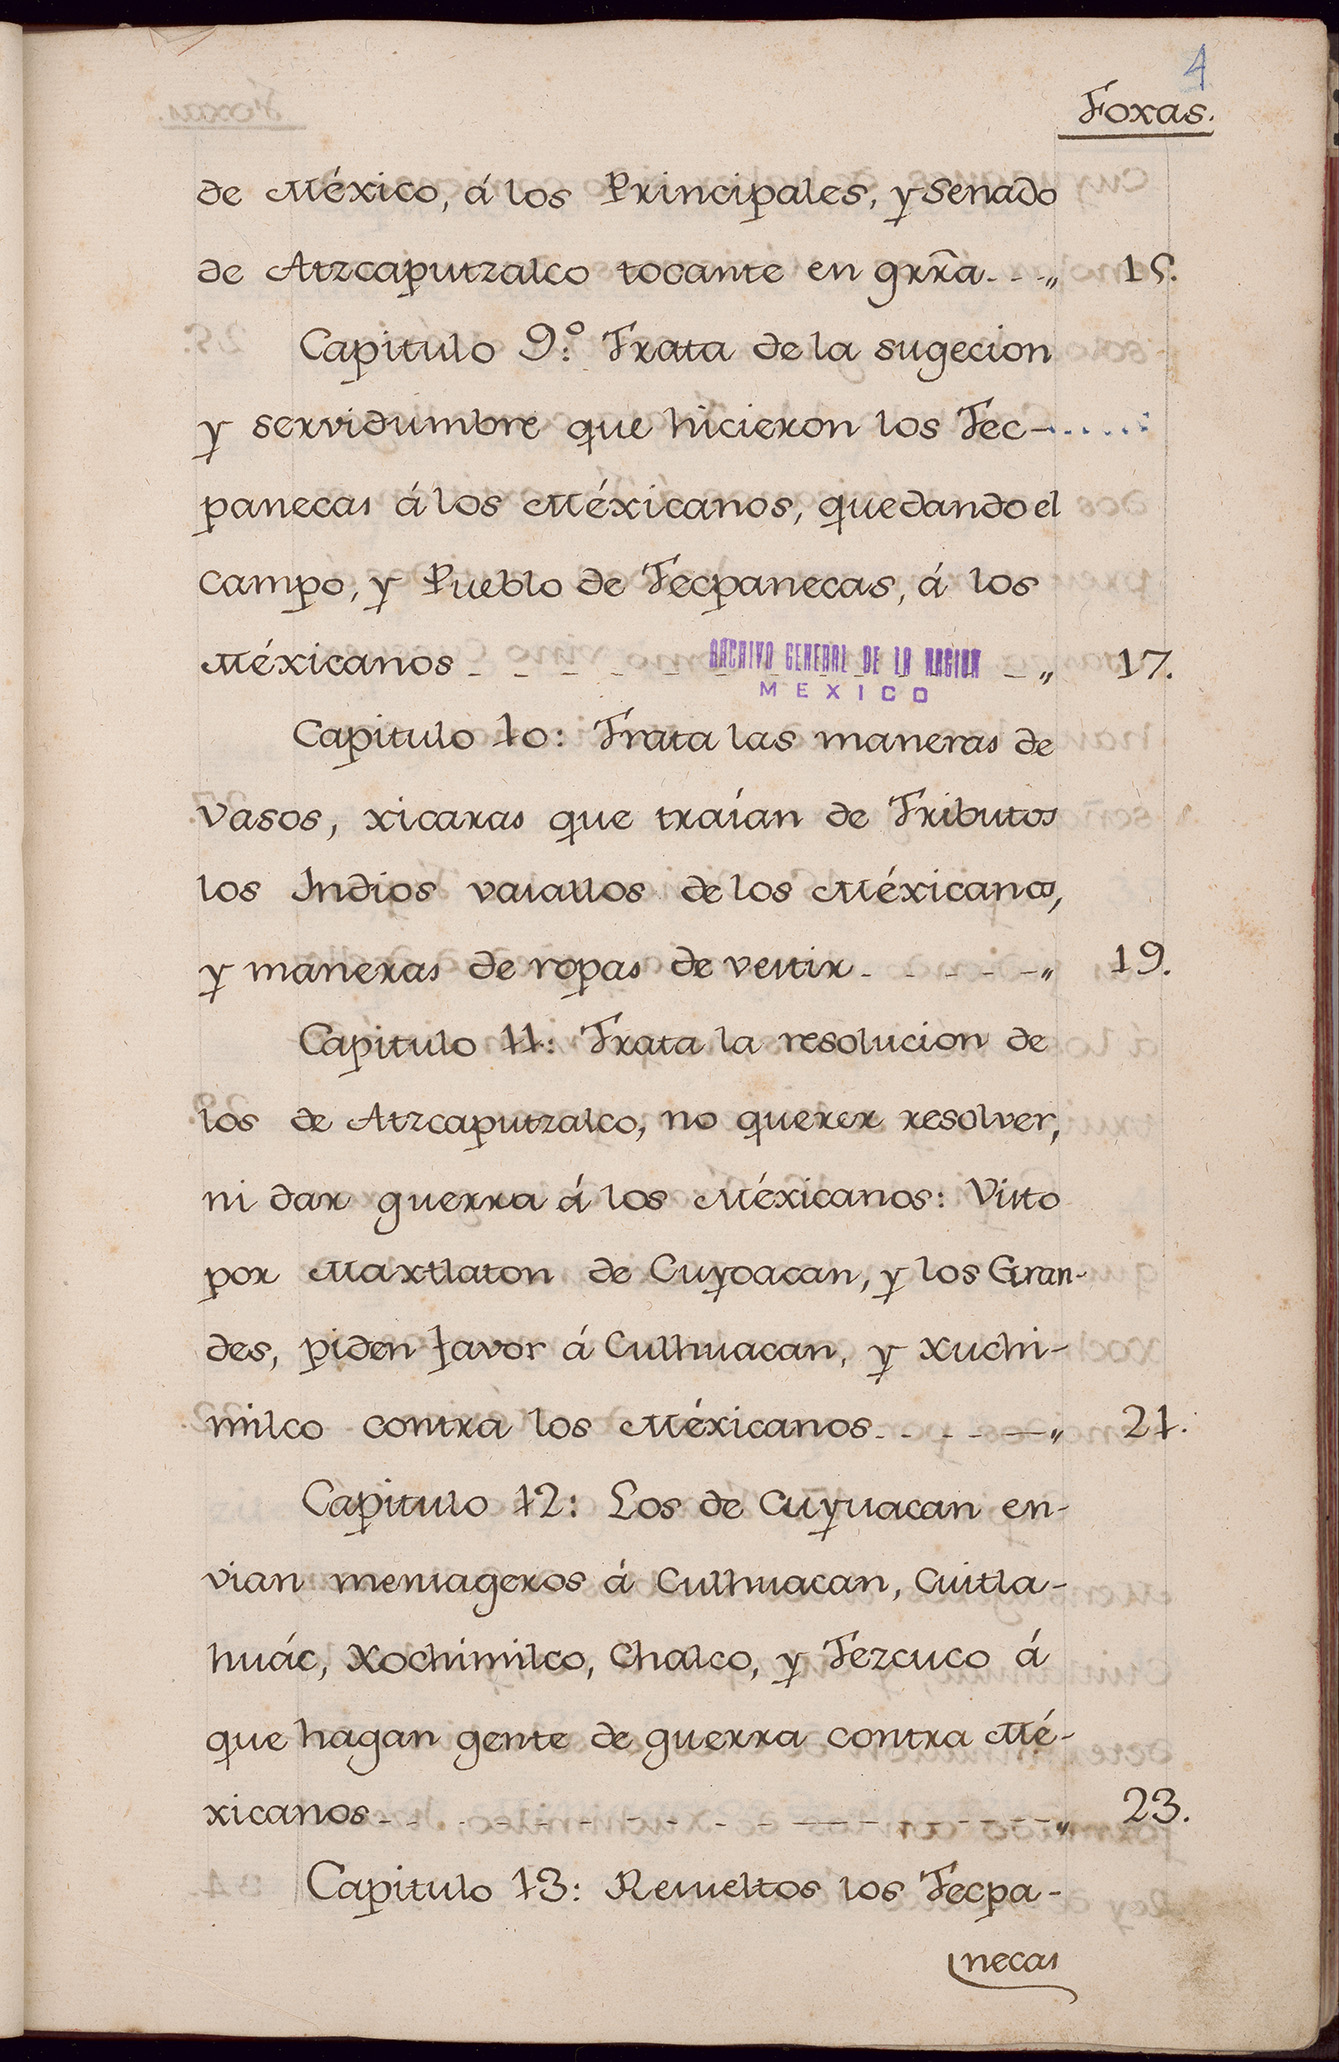 4
Foxas.
de México, á los Principales, y Senado
de Atzcaputzalco tocante en grr̃a - - - „ 15.
Capitulo 9.º: Trata de la sugecion
y servidumbre que hicieron los Tec-
panecas á los Méxicanos, quedando el
campo, y Pueblo de Tecpanecas, á los
Méxicanos - - - - - - - - - - - - „ 17.
ARCHIVO GENERAL DE LA NACION
MEXICO
Capitulo 10: Trata las maneras de
vasos, xicaras que traían de Tributos
los Indios vasallos de los Méxicanos,
y maneras de ropas de vestir - - - - - „ 19.
Capitulo 11: Trata la resolucion de
los de Atzcaputzalco, no querer resolver,
ni dar guerra á los Méxicanos: Visto
por Maxtlaton de Cuyoacan, y los Gran-
des, piden favor á Culhuacan, y Xuchi-
milco contra los Méxicanos - - - - - „ 21.
Capitulo 12: Los de Cuyuacan en-
vian mensageros á Culhuacan, Cuitla-
huác, Xochimilco, Chalco, y Tezcuco á
que hagan gente de guerra contra Mé-
xicanos - - - - - - - - - - - - - - - „ 23.
Capitulo 13: Resueltos los Tecpa-
necas